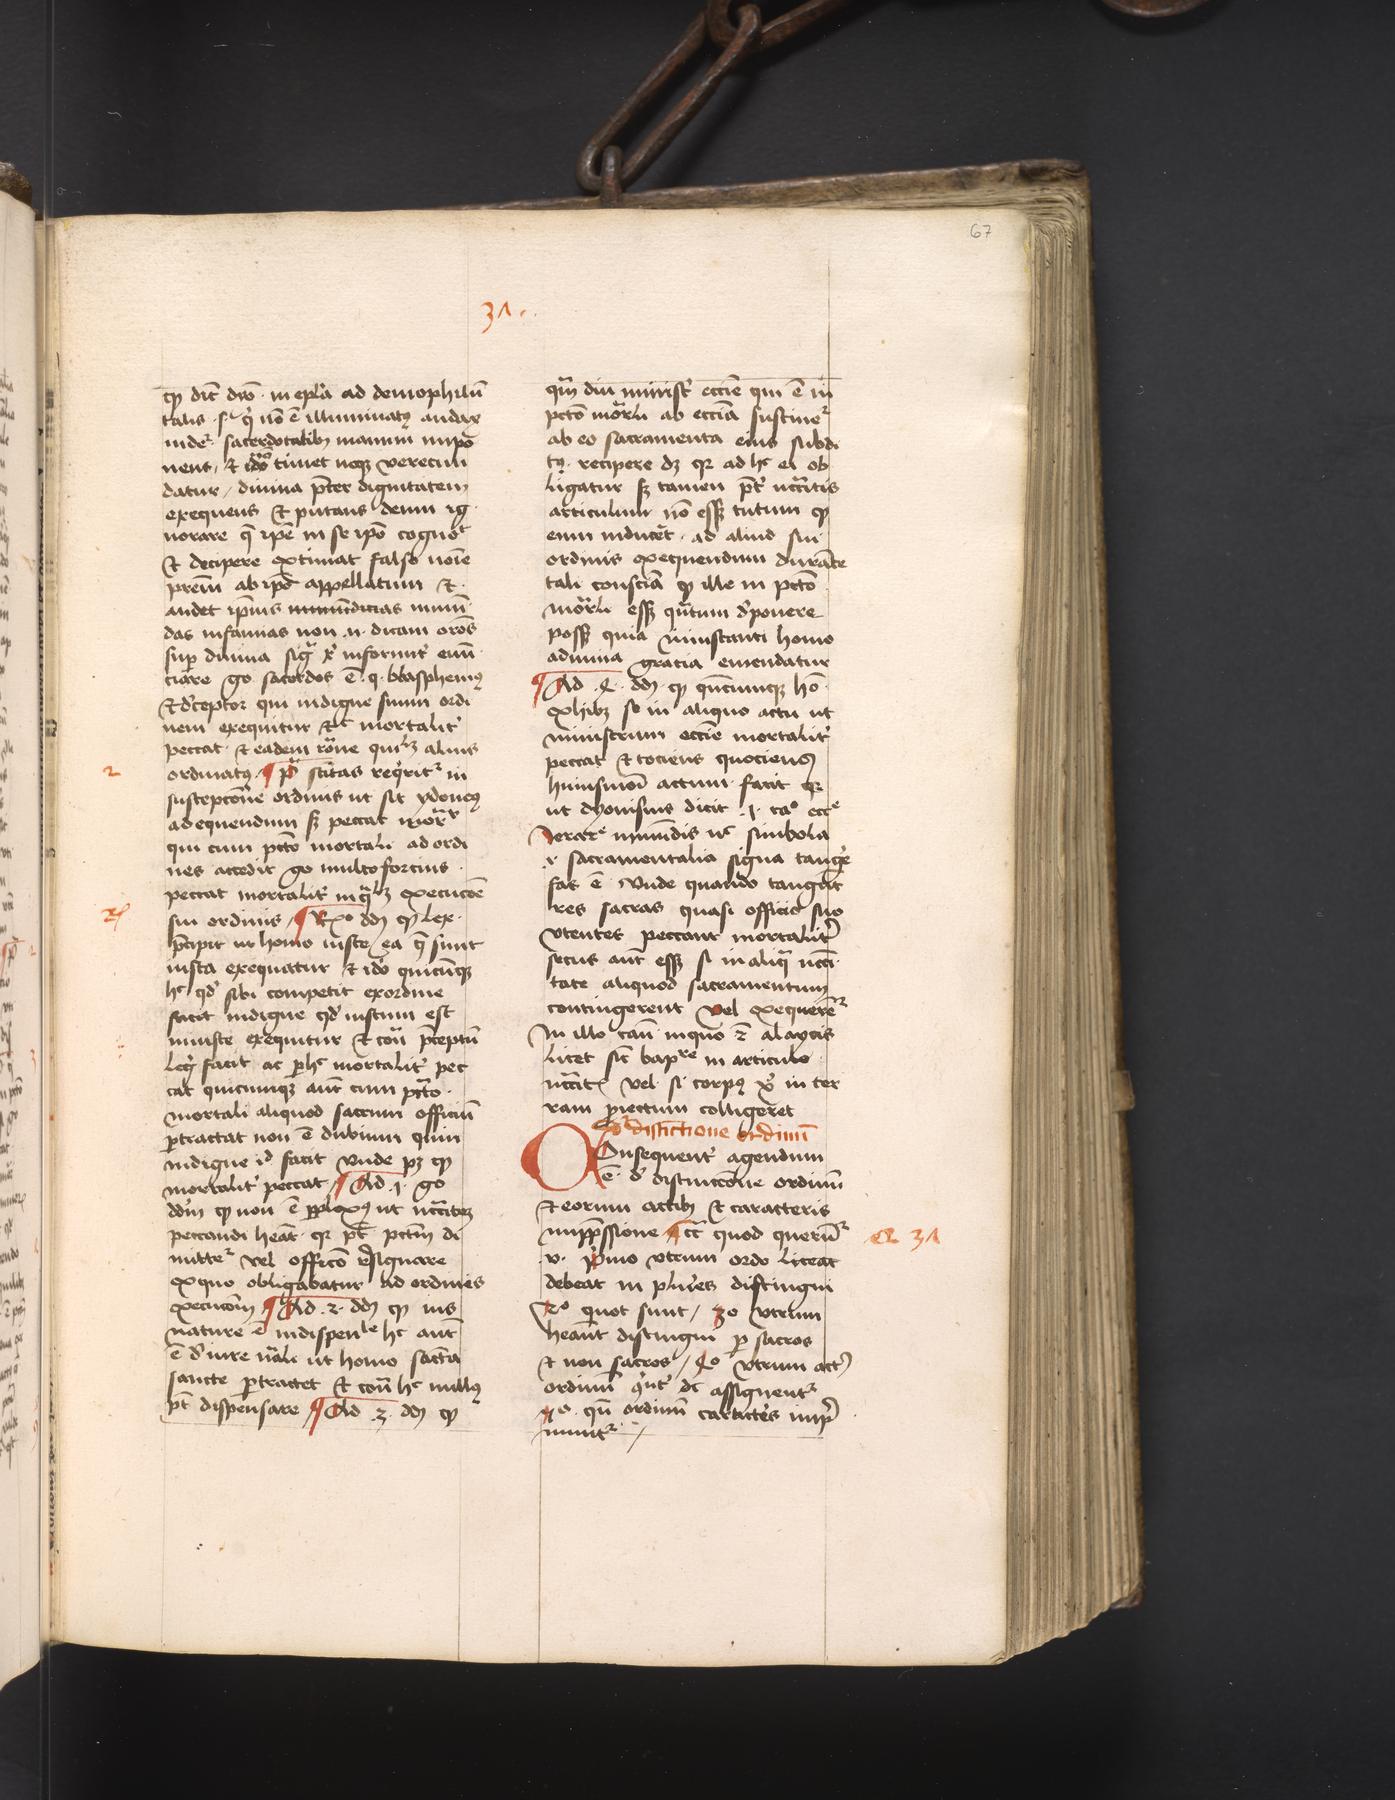 67
31
qꝫ dic̄ dyo͞. in ep̄la ad demophilū
talis .s. q̇ nō ē illuminatꝰ audax
uideꝛ̉ sacerdotalibꝫ manum impo
nens, et id̄o timet neqꝫ verecun
datur, diuina p̄ter dignitatem
exequens et putans deum ig
norare q̄ ip̄e in se ip̄o cognoꝰ
et decipere extimat falso nōie
pr̄em ab ip̄o appellatum et
audet ip̄ius immundicias mun̄
das infamias non .n. dicam orōs
sup diuina siḡ xp̄i inform̄t enū
ciare go sacerdos ē q. blasphemꝰ
et d̓ceptor qui indigne suum ordi
nem exequitur et sic mortalit̓
peccat. et eadem rōne quilꝫ alius
2
ordinatꝰ. ¶ p̄t̓ scitas req̓ritꝛ̉ in
susceptōne ordinis ut sit ydoneꝰ
ad equendum sꝫ peccat mor̄r
qui cum pctō mortali ad ordi
nes accedit go multo forcius.
peccat mortalit̓ in q̄lꝫ executōe
sui ordinis, ¶ Rx̄o dd̄m qꝫ lex.
p̄cipit ut homo iuste ea q̄ sunt
iusta exequatur et id̓o quicūqꝫ
hͨ qd̓ sibi competit ex ordine
facit indigne qd̓ iustum est
iniuste exequitur et cōn̄ p̄ceptū
leg̓ facit ac p̄ hͨ mortalit̓ pec
cat quicumqꝫ aūt cum pctō.
mortali aliquod sacrum officiū
p̱tractat non ē dubium quin
indigne id facit vnde pꝫ qꝫ
mortalit̓ peccat, ¶ Ad .1. go
dd̄m qꝫ non ē ꝑplexꝰ ut nc̄citēꝫ
peccandi heāt. qꝛ pt̄ pctm̄ di
mitteꝛ̉ vel officō resignare
ex quo obligabatur ad ordines
executōm ¶ Ad .2. dd̄m qꝫ ius
nature ē indispenˡᵉ hͨ aūt
ē d̓ iure nāli ut homo sācta
sancte p̱tractet et cōn̄ hͨ nullꝰ
pt̄ dispensare, ¶ Ad .3. dd̄m qꝫ
qm̄ diu minist̓ eccīe qui ē in
pctō mōrli ab eccīa sustineꝛ̉
ab eo sacramenta eius subdi
tꝰ. recipere dꝫ qꝛ ad hͨ ei ob
ligatur sꝫ tamen p̄t̓ nc̄citis
articulum nō essꝫ tutum qꝫ
eum induceꝛ̉t. ad aliud sui
ordinis exequendum durāte
tali consciā qꝫ ille in pctō
mōrli essꝫ qūtum d̓ponere
possꝫ quia in instanti homo
a diuina gracia emendatur
¶ Ad .4. dd̄m qꝫ qn̄cumqꝫ hō.
exhibꝫ se in aliquo actu ut
ministrum eccīe mortalit̓
peccat et tociens quociens
huiusmōi actum facit qꝛ
ut dyonisius dicit .1. cao ecce
Ierarᵉ inmūdis nͨ simbola
.i. sacramentalia signa tang̓e
fas ē. Vnde quando tangūt
res sacras quasi officio suo
vtentes peccant mortalit̓
secus aūt essꝫ si in aliq̄ ncc̄i
tate aliquod sacramentum
contingerent vel exequerēꝛ̉
In illo casu in quo ꝛ̄ a laycis
licet sic̄ bapᵗʳᵉ in articulo
nc̄cit̓ vel si corpꝰ xp̄i in ter
ram p̱iectum colligeret
d̓ distinctione ordinū
Consequent̓ agendum
ē d̓ distinctōne ordinū
et eorum actibꝫ et caracteris
imp̄ssione ¶ cc̄ quod querūꝛ̉
q 31
v. p̄mo vtrum ordo liceat
debeat in plures distingui
2o quot sunt, 3o vtrum
heānt distingui p̱ sacros
et non sacros, 4o vtrum act̓
ordinū q̓nt̓ dc̄ assignentꝛ̉
5o. qn̄ ordinū cart̓ctes imp̓
muntꝛ̉,